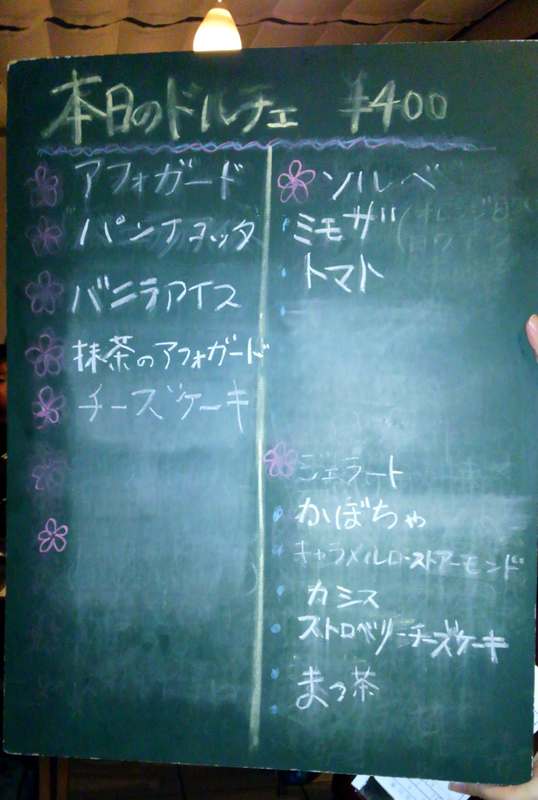 本日のドルチェ ¥400
アフォガード
パンナコッタ
バニラアイス
抹茶のアフォガード
チーズケーキ
ソルベ
ミモザ(オレンジ
トマト
ジェラート
かぼちゃ
キャラメルローストアーモンド
カシス
ストロベリーチーズケーキ
まっ茶